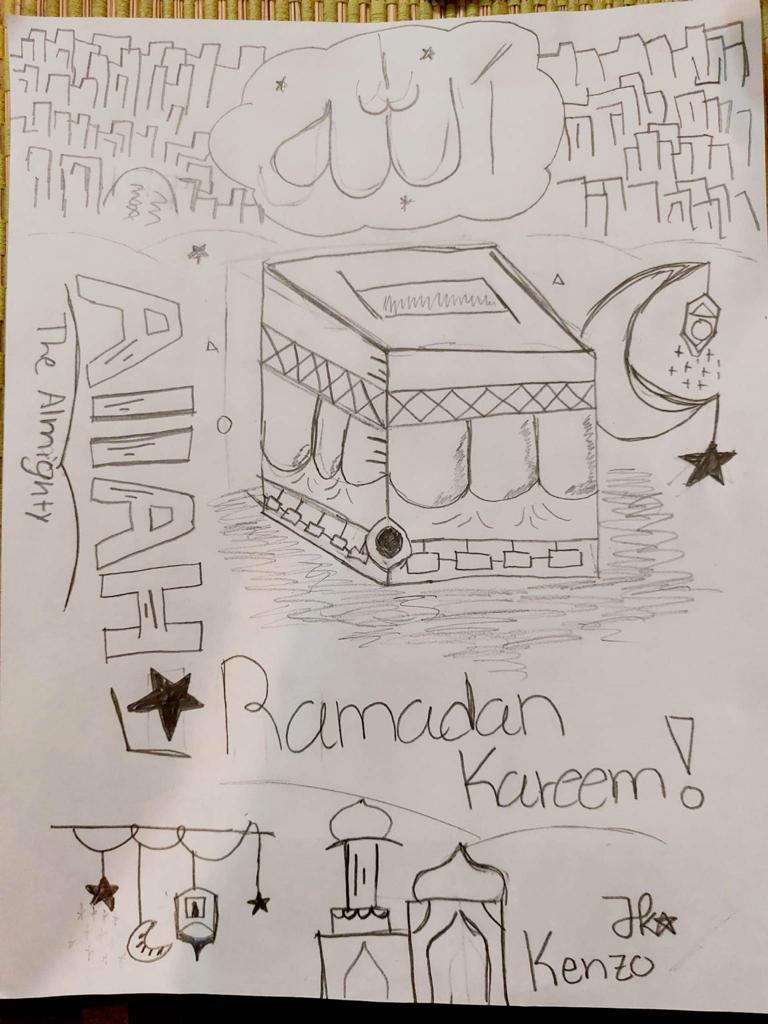 الله
AllAH
The Almighty
Ramadan
Kareem!
Kenzo